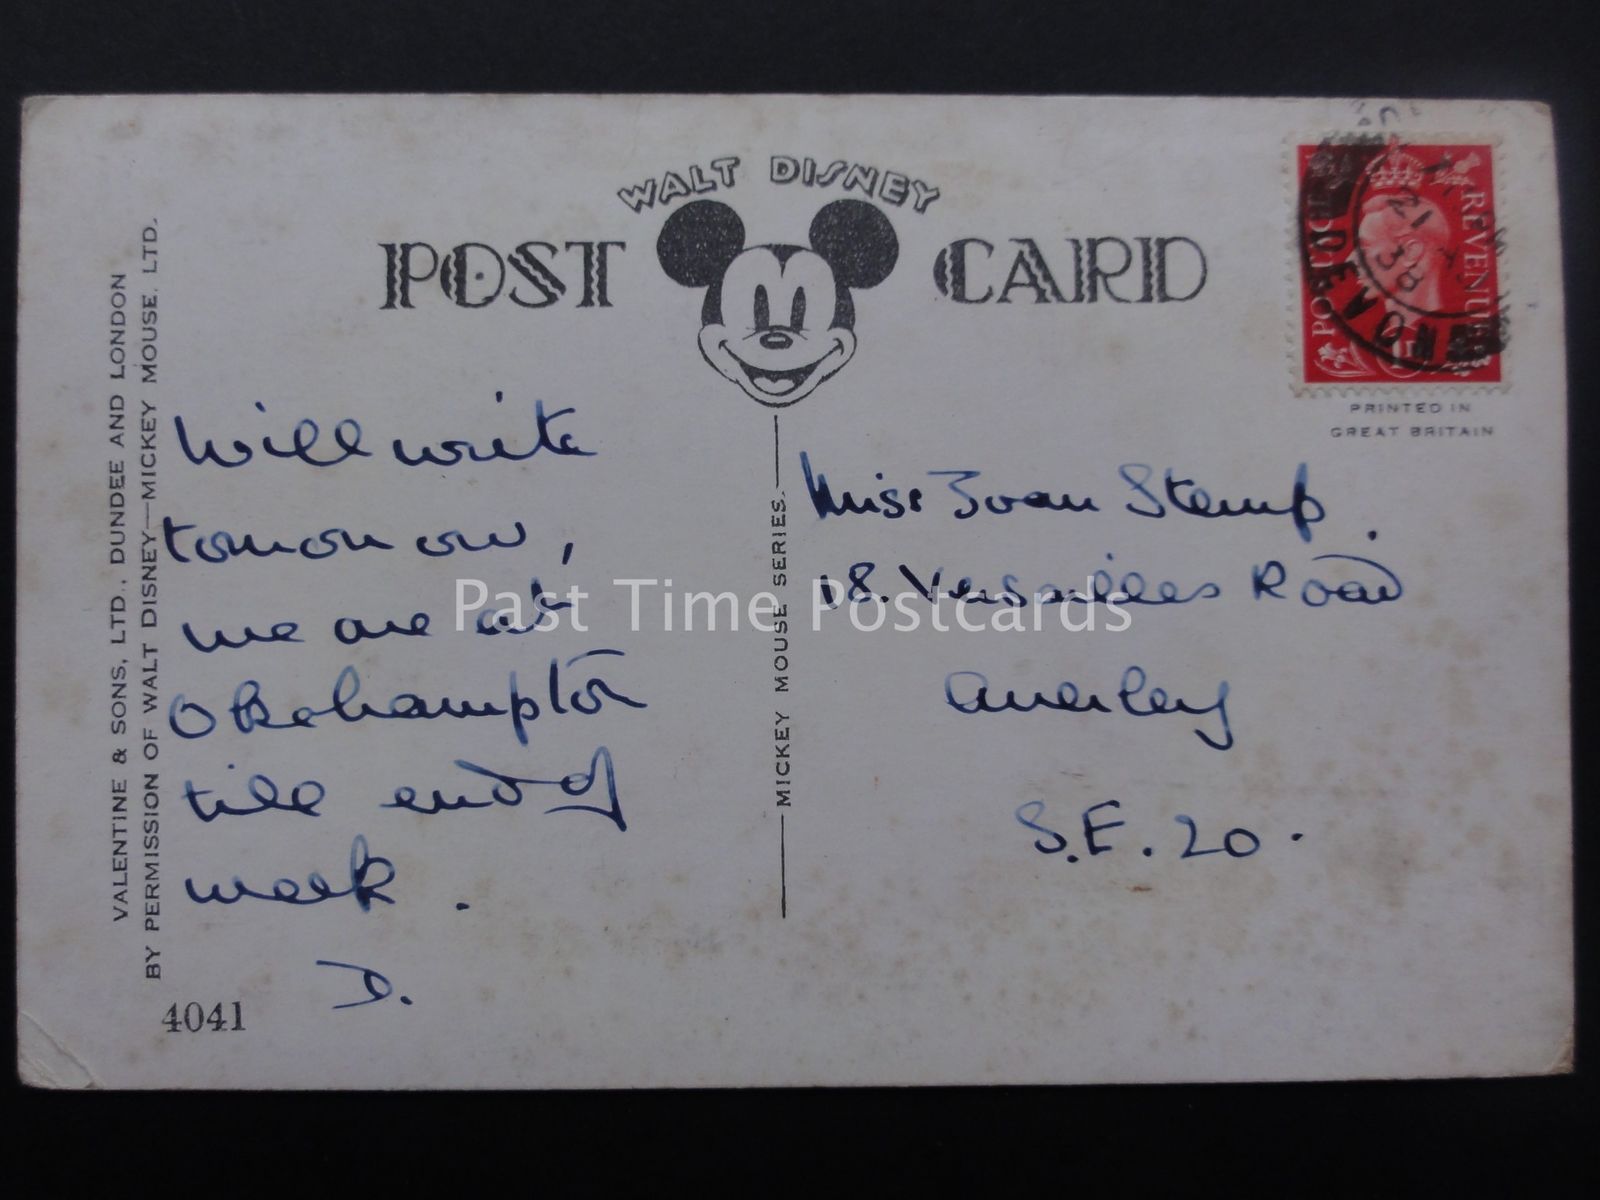 WALT DISNEY
POST CARD
PRINTED IN
GREAT BRITAIN
REVENUE
POSTAGE
DEVON
VALENTINE & SONS, LTD., DUNDEE AND LONDON
BY PERMISSION OF WALT DISNEY—MICKEY MOUSE, LTD.
MICKEY MOUSE SERIES.
Will write
tomorrow,
we are at
Okehampton
till end of
week.
D.
4041
Miss Joan Stemp.
18. Versailles Road
Anerley
S.E. 20.
Past Time Postcards